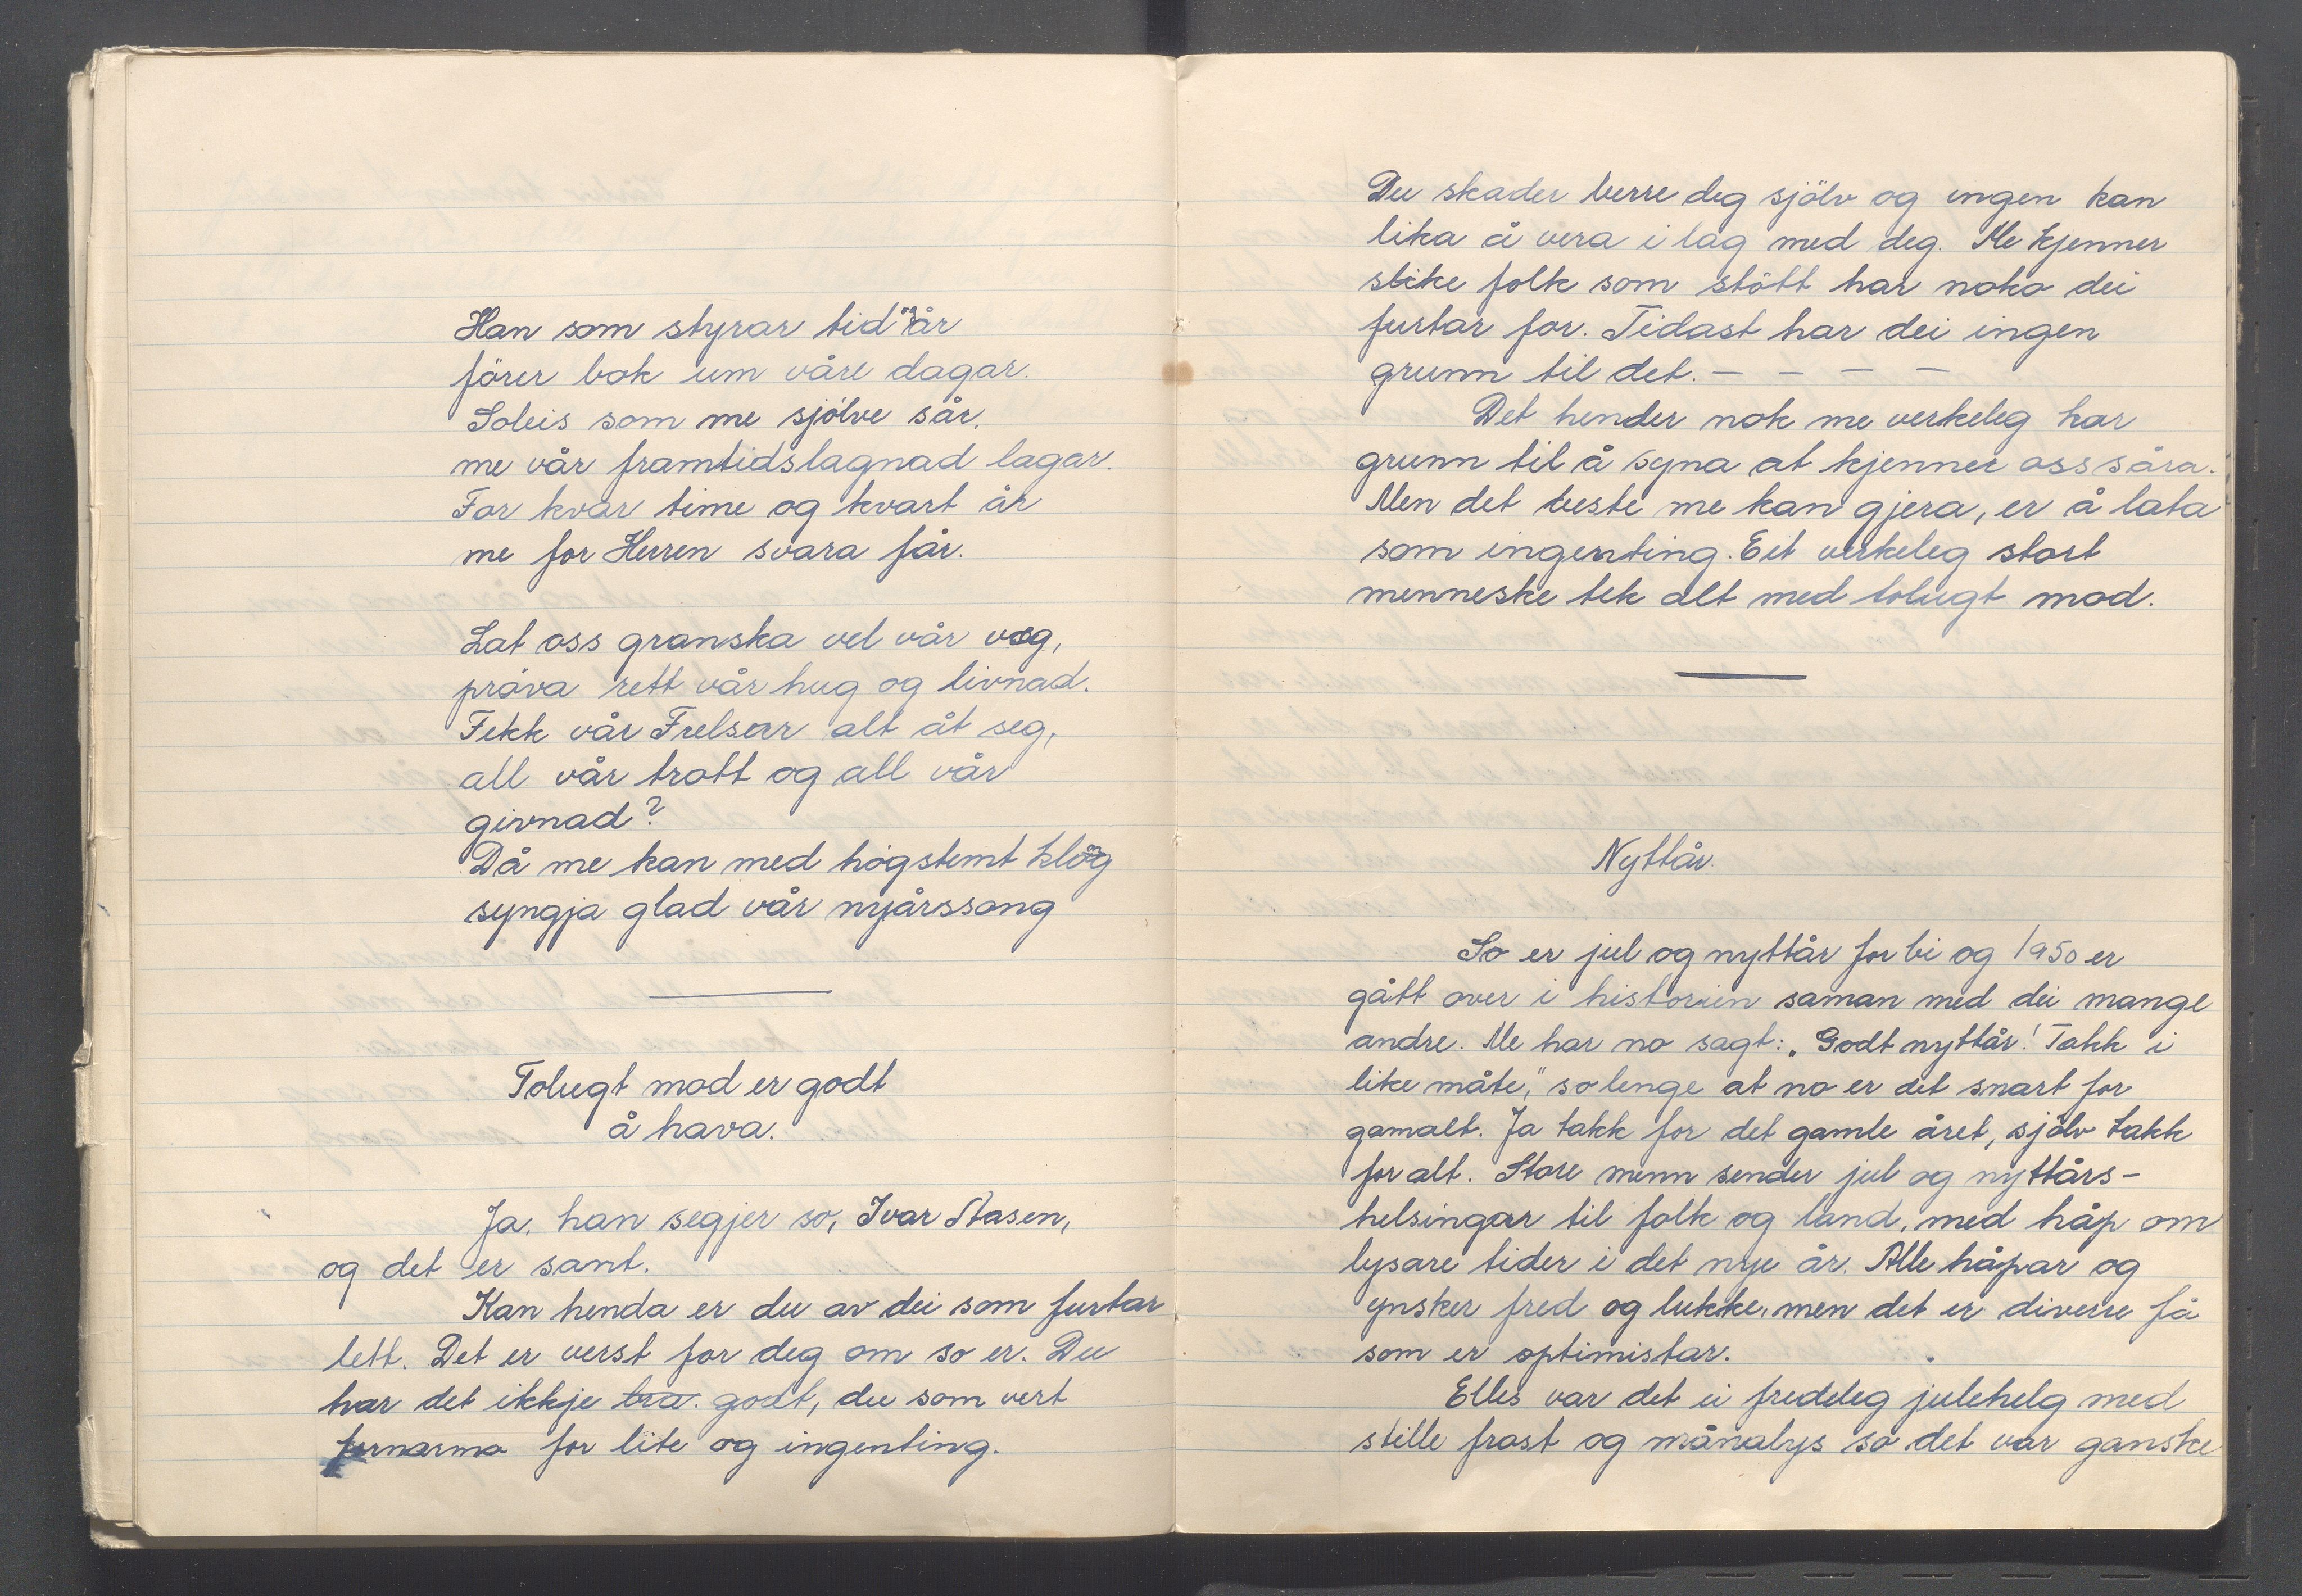 Han som styrar tid og år
förer bok um våre dagar.
Soleis som me sjølve sår,
me vår framtidslagnad lagar.
For kvar time og kvart år
me for Herren svara får.
Lat oss granska vel vår veg,
prøva rett vår hug og livnad.
Fekk vår Frelsar alt åt seg,
all vår trott og all vår
givnad?
Då me kan med høgstemt klång
syngja glad vår nyårssong
Tolugt mod er godt
å hava.
Ja, han segjer so, Ivar Aasen,
og det er sant.
Kan henda er du av dei som furtar
lett. Det er verst for deg om so er. Du
har det ikkje bra. godt, du som vert
fornarma for lite og ingenting.
Du skader berre deg sjölv og ingen kan
lika å vera i lag med deg. Me kjenner
slike folk som stött har noko dei
furtar for. Tidast har dei ingen
grunn til det. – – – –
Det hender nok me verkeleg har
grunn til å syna at kjenner oss såra.
Men det beste me kan gjera, er å lata
som ingenting. Eit verkeleg stort
menneske tek alt med tolugt mod.
Nyttår.
So er jul og nyttår forbi og 1950 er
gått over i historien saman med dei mange
andre. Me har no sagt: „Godt nyttår! Takk i
like måte," so lenge at no er det snart for
gamalt. Ja takk for det gamle året, sjölv takk
for alt. Store menn sender jul og nyttårs-
helsingar til folk og land, med håp om
lysare tider i det nye år. Alle håpar og
ynsker fred og lukke, men det er diverre få
som er optimistar.
Elles var det ei fredeleg julehelg med
stille frost og månalys so det var ganske